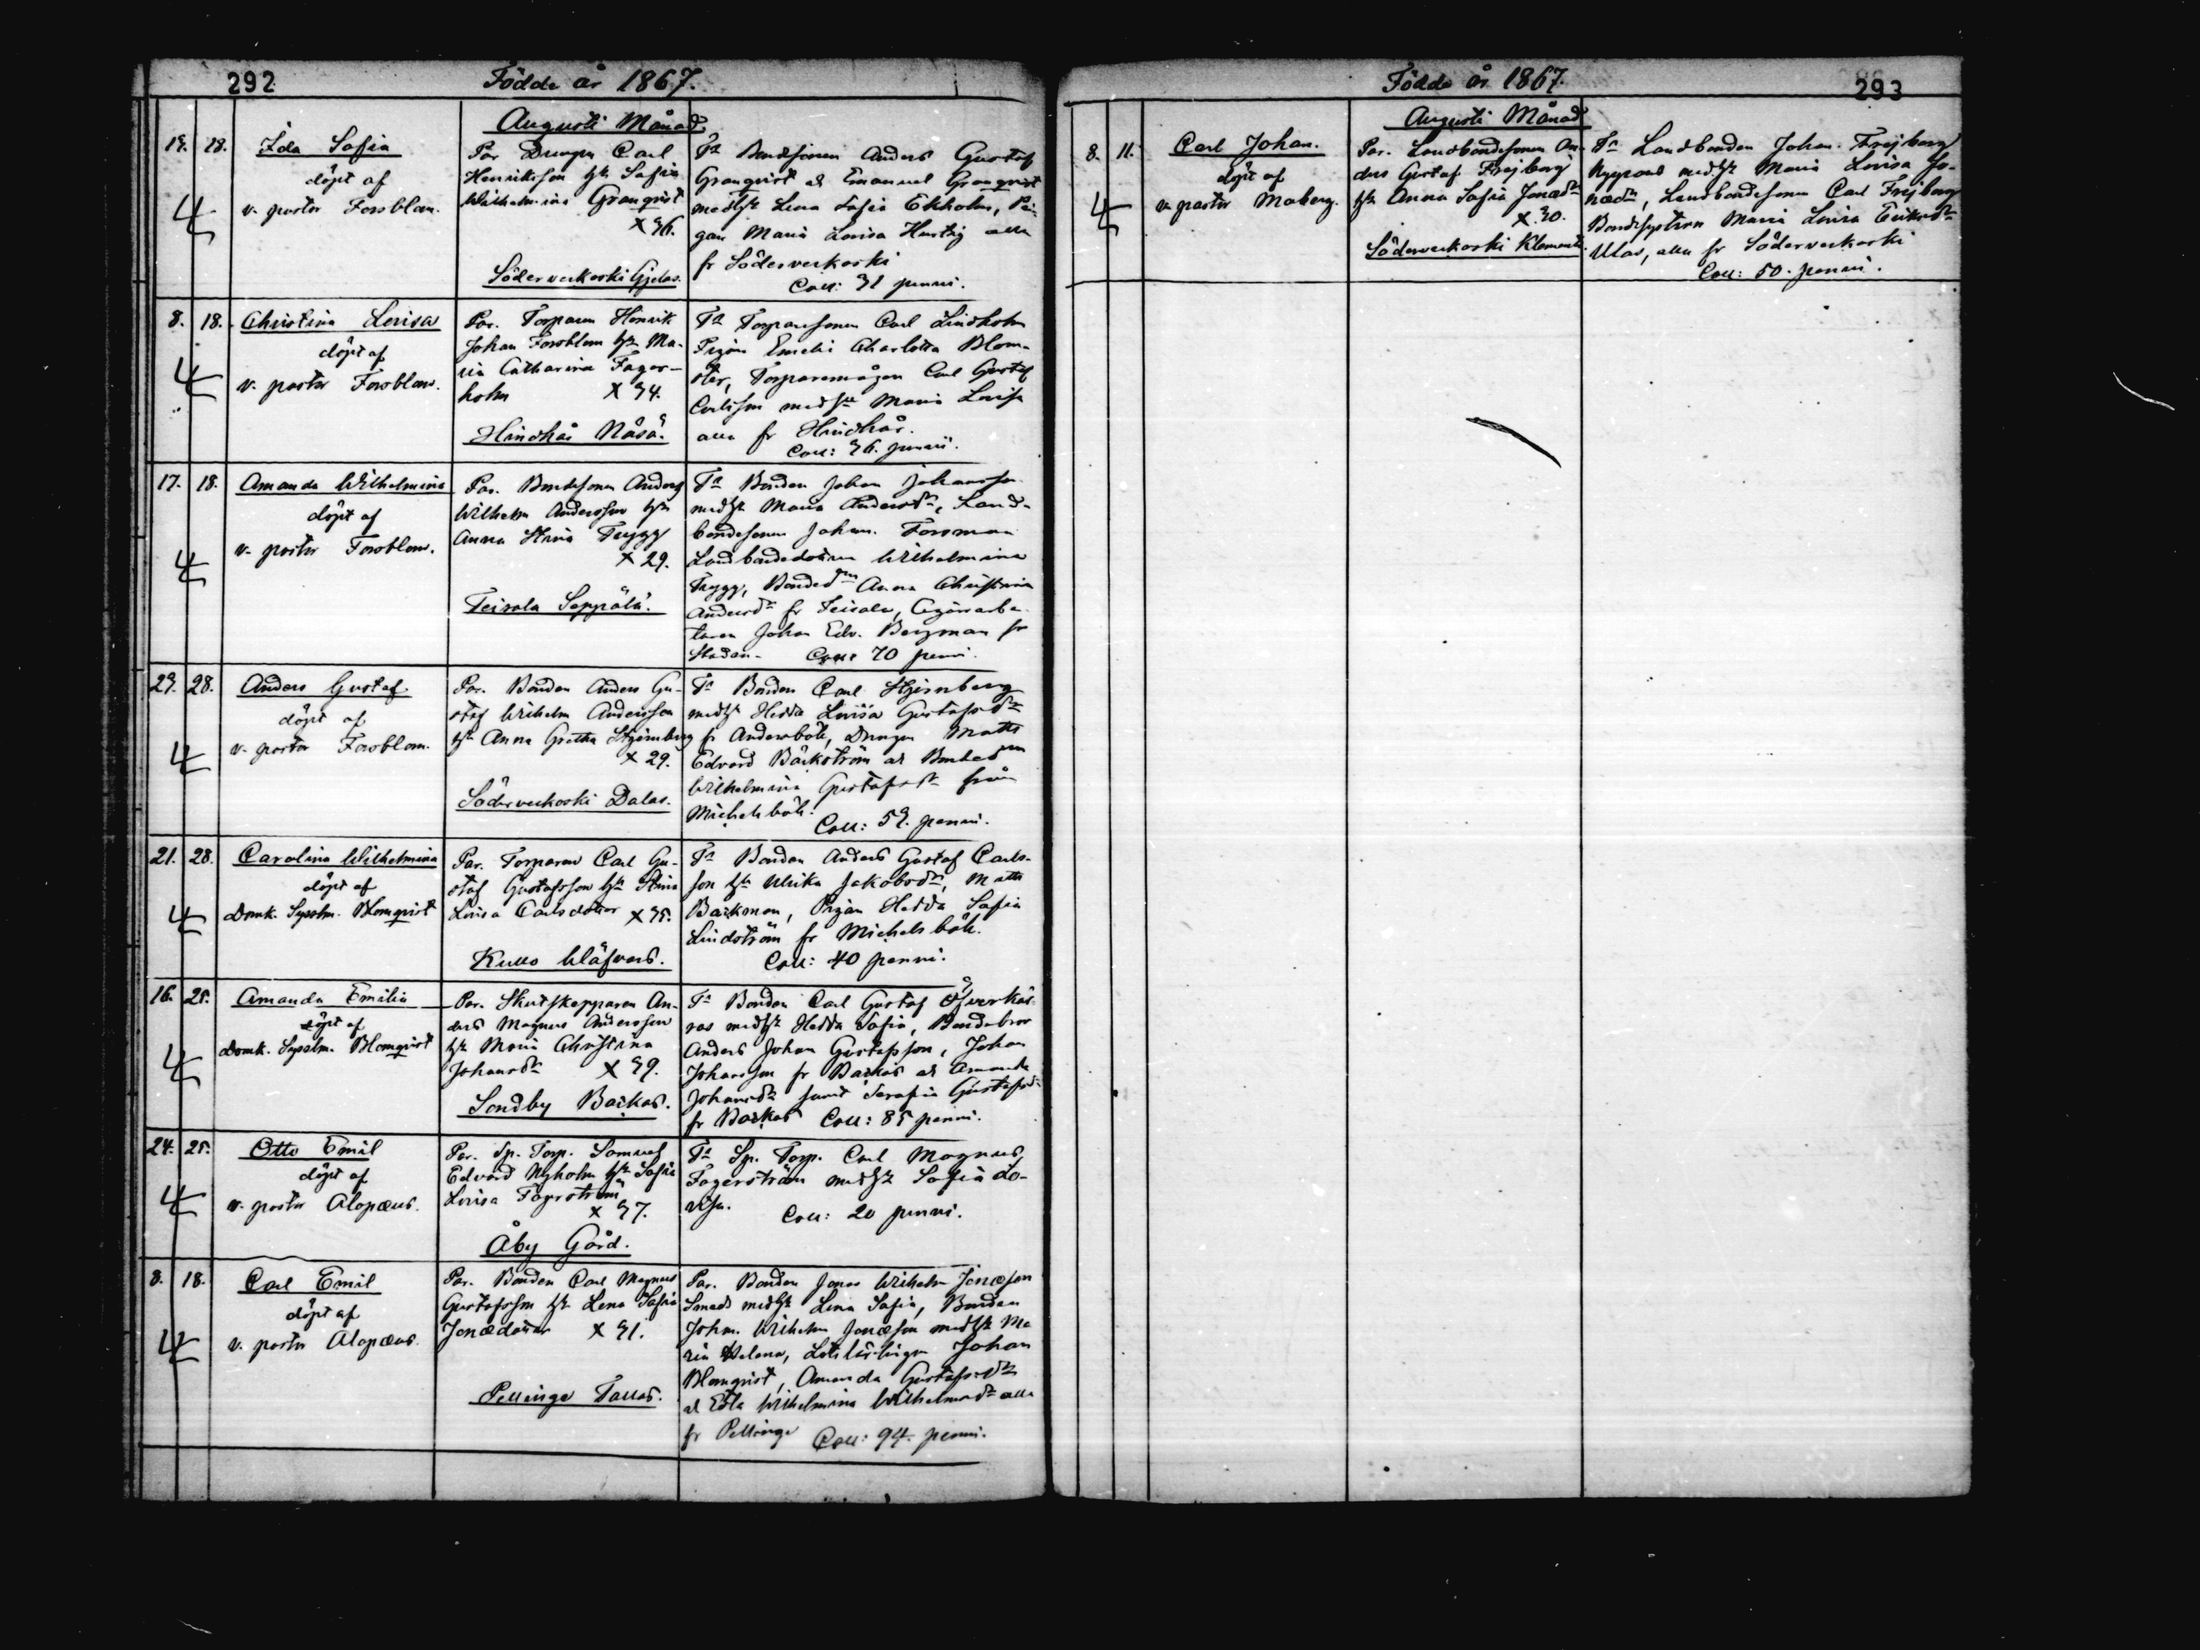 292
Födde år 1867.
Augusti Månad
13. 18. Ida Sofia
döpt af
v. pastor Forsblom.
Par Drengen Carl
Henriksson hu Sofia
Wilhelmina Granqvist
X 36.
Söderveckoski Gjelas.
Fa Bondesonen Anders Gustaf
Granqvist & Emanuel Granqvist
med hu Lena Sofia Ekholm, Pi-
gan Maria Lovisa Hurtig alla
fr Söderveckoski
Coll: 31 penni.
8. 18. Christina Lovisa
döpt af
v. pastor Forsblom.
Par. Torparen Henrik
Johan Forsblom hu Ma-
ria Catharina Fager-
holm X 34.
Hindhår Nåså.
Fa Torparesonen Carl Lindholm
Pigan Emelie Charlotta Blom-
ster, Torparemågen Carl Gustaf
Carlsson med hu Maria Lovisa
alla fr Hindhår.
Coll: 36. penni.
17. 18. Amanda Wilhelmina
döpt af
v. pastor Forsblom.
Par. Bondesonen Anders
Wilhelm Andersson hu
Anna Stina Trygg
X 29.
Teisala Seppälä.
Fa Bonden Johan Johansson
med hu Maria Andersdr, Land-
bondesonen Johan Forsman
Landbondedottren Wilhelmina
Trygg, Bonded. Anna Christina
Andersdr fr Teisala,
Johan Edv. Bergman fr
Staden. Coll: 70 penni.
23. 28. Anders Gustaf
döpt af
v. pastor Forsblom.
Par. Bonden Anders Gu-
staf Wilhelm Andersson
hu Anna Gretha Stjernberg
X 29.
Söderveckoski Dalas.
Fa Bonden Carl Stjernberg
med hu Hedda Lovisa Gustafsdr
fr Andersböle, Drengen Matts
Edvard Bäckström &
Wilhelmina Gustafsdr från
Michelsböle.
Coll: 53. penni.
21. 28. Carolina Wilhelmina
döpt af
Domk. Sysslm. Blomqvist
Par. Torparen Carl Gu-
staf Gustafsson hu Stina
Lovisa Carlsdotter X 35.
Kullo Wäfvars.
Fa Bonden Anders Gustaf Carls-
son hu Ulrika Jakobsdr, Matts
Backman, Pigan Hedda Sofia
Lindström fr Michelsböle.
Coll: 40 penni.
16. 25. Amanda Emilia
döpt af
Domk. Sysslm. Blomqvist
Par. Skutskepparen An-
ders Magnus Andersson
hu Maria Christina
Johansdr X 39.
Sondby Backas.
Fa Bonden Carl Gustaf
med hu Hedda Sofia, Bondebror
Anders Johan Gustafsson, Johan
Johansson fr Backas & Amanda
Johansdr samt Serafia Gustafsdr
fr Backas Coll: 85 penni.
24. 25. Otto Emil
döpt af
v. pastor Alopæus.
Par. Sp. Torp. Samuel
Edvard Nyholm hu Sofia
Lovisa Fagerström
X 37.
Åby Gård.
Fa Sp. Torp. Carl Magnus
Fagerström med hu Sofia Lo-
visa.
Coll: 20 penni.
8. 18. Carl Emil
döpt af
v. pastor Alopæus.
Par. Bonden Carl Magnus
Gustafsson hu Lena Sofia
Jonædotter X 31.
Pellinge Tallas.
Par. Bonden Jonas Wilhelm Jonæson
Smeds med hu Lena Sofia, Bonden
Johan Wilhelm Jonæson med hu Ma-
ria Helena, Lotslärlingen Johan
Blomqvist, Amanda Gustafsdr
& Edla Wilhelmina Wilhelmsdr alla
fr Pellinge Coll: 94. penni.
293
Födde år 1867.
Augusti Månad
8. 11. Carl Johan.
döpt af
v. pastor Moberg.
Par. Landbondesonen An-
ders Gustaf Frejborg
hu Anna Sofia Jonædr
X 30.
Söderveckoski Klements.
Fa Landbonden Johan Frejborg
Nygrans med hu Maria Lovisa Jo-
nædr, Landbondesonen Carl Frejborg
Bondesystren Maria Lovisa Eriksdr
Ulas, alla fr Söderveckoski
Coll: 50. penni.